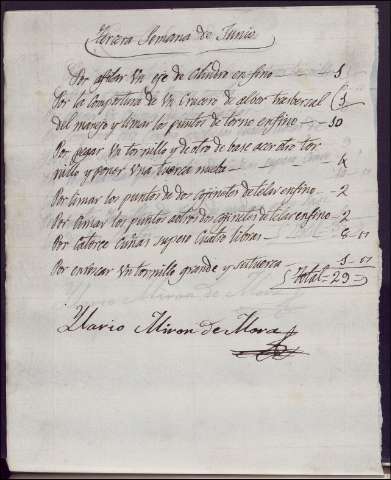 tercera Semana de Junio
Por afilar Un eje de Cilindro en fino — 5
Por la Compostura de Un Crucero de
del manejo y limar los puntos de torno enfino — 10
Por pegar Un tornillo y de otro de base otro tor
nillo y poner Una tuerca nueba — 4
Por limar los puntos de dos Cojinetes de telar enfino — 2
Por limar los puntos aotros dos Cojinetes de telar enfino — 2
Por Catorce Cuñas supeso Cuatro libras — 8 —
Por enroscar Un tornillo grande y sutuerca — 1 —
Total — 29
Ylario Miron de Mora